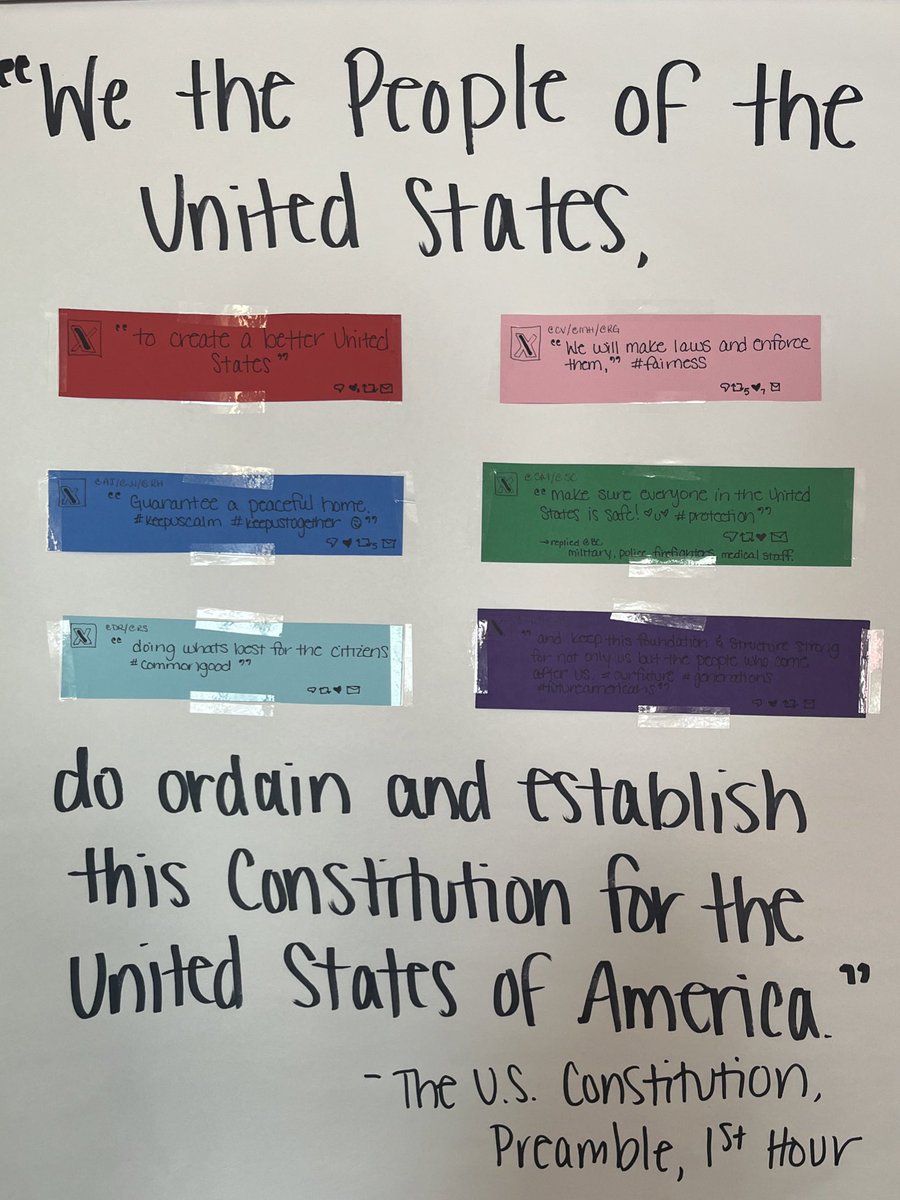 "We the People of the
United States,
X
"to create a better United
States"
X
@CV/@MH/@RG
"We will make laws and enforce
them," #fairness
5
7
X
@AJ/@W/@RH
"Guarantee a peaceful home.
#keepuscalm #keepustogether ☺"
5
X
"make sure everyone in the United
States is safe! ♡u♡ #protection"
→replied @BC
military, police, firefighters, medical staff.
X
@DR/@RS
"doing whats best for the citizens
#commongood"
X
"and keep this foundation & structure strong
for not only us but the people who come
after us. #ourfuture #generations
#futureamericans"
do ordain and establish
this Constitution for the
United States of America."
- The U.S. Constitution,
Preamble, 1st Hour